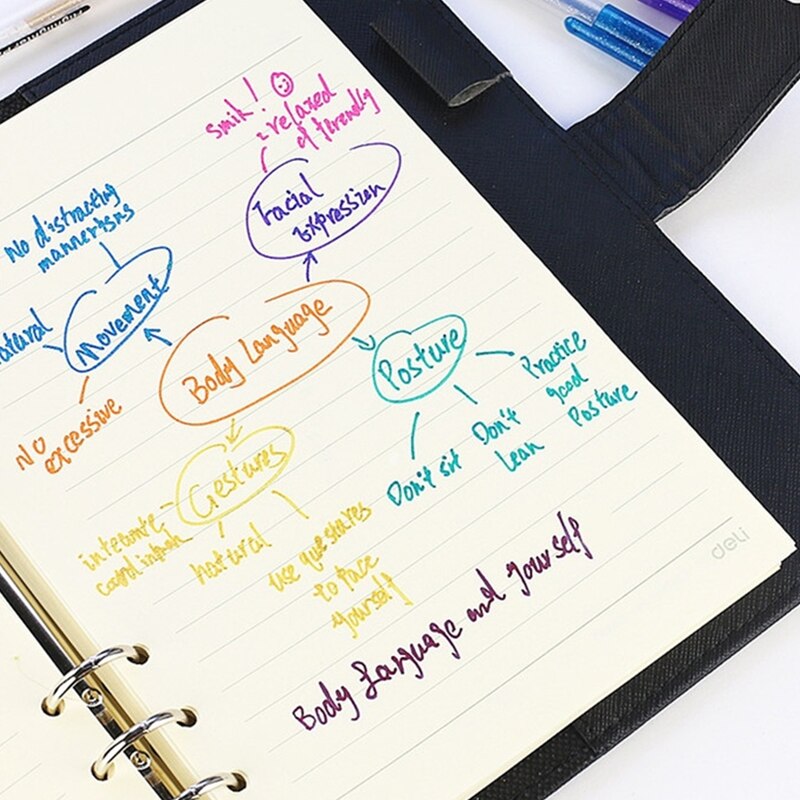 smile! ☺
relaxed
friendly
Facial
Expression
No distracting
mannerisms
Movement
natural
No
excessive
Body Language
Posture
Practice
good
Posture
Don't
lean
Don't sit
Gestures
natural
use
to
yourself
deli
Body Language and yourself